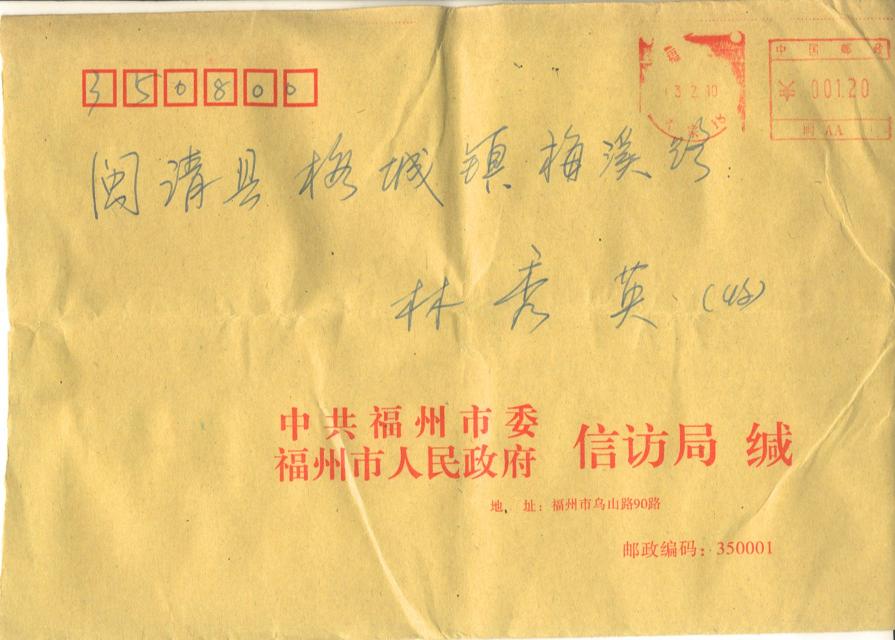 350800
中国邮政
001.20
闽 AA
3.2.10
闽清县梅城镇梅溪路
林秀英(收)
中共福州市委
福州市人民政府 信访局 缄
地 址：福州市乌山路90路
邮政编码：350001